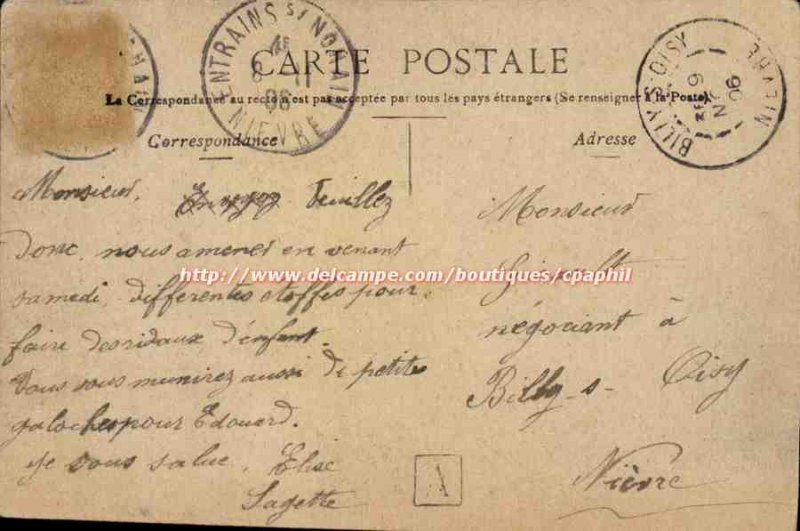 ENTRAINS St NOHAIN
8 11
06
NIEVRE
BILLY-S-OISY
9
NOV
06
NIEVRE
CARTE POSTALE
La Correspondance au recto n'est pas acceptée par tous les pays étrangers (Se renseigner à la Poste).
Correspondance
Adresse
Monsieur, Veuillez
donc nous amener en venant
samedi, différentes étoffes pour
faire des rideaux d'enfant.
Vous vous munirez aussi de petites
galoches pour Edouard.
Je vous salue. Elise
Lagette
http://www.delcampe.com/boutiques/cpaphil
Monsieur
négociant à
Billy-s-Oisy
Nièvre
A